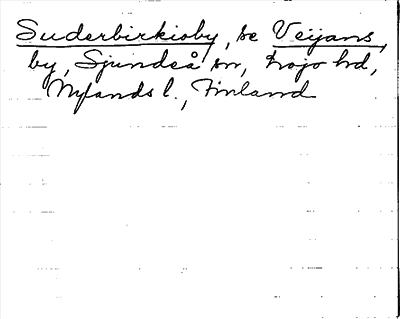 Suderbirkioby, se Veijans,
by, Sjundeå sn, Lojo hd,
Nylands l., Finland